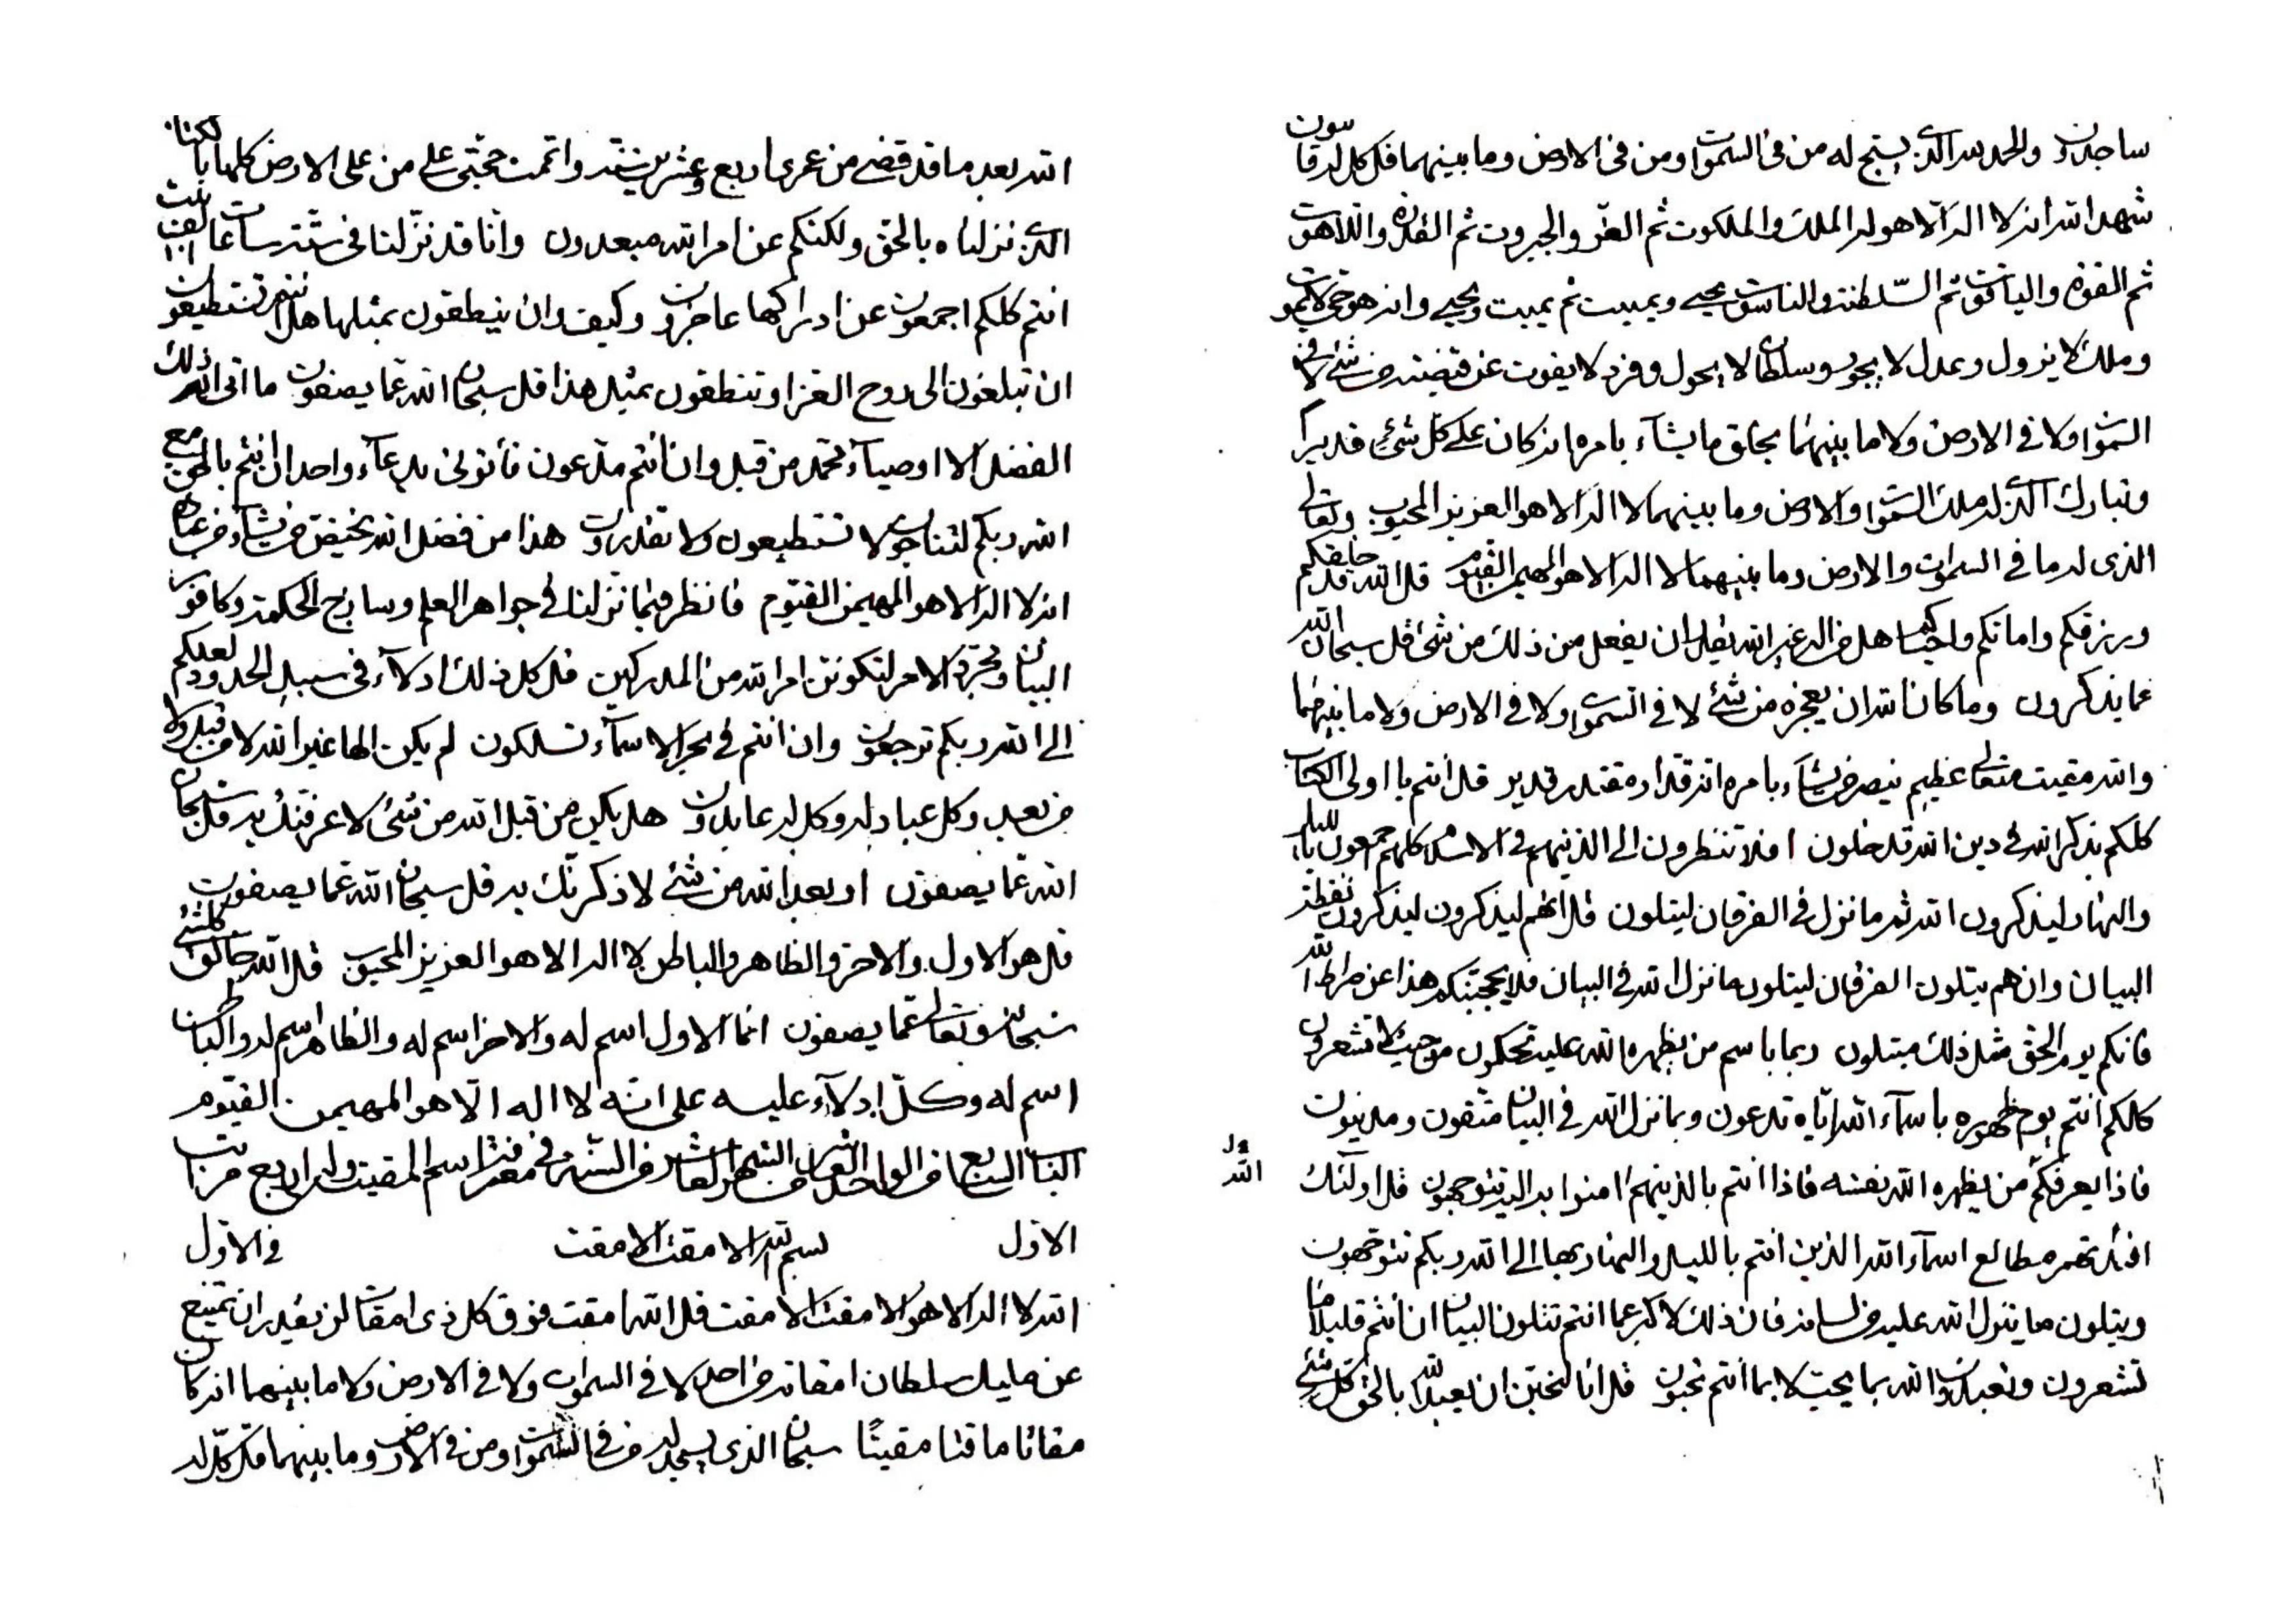 ساجدون والحمد لله الذي يسبح له من في السموات ومن في الارض وما بينهما قل كل له قانتون
شهد الله انه لا اله الا هو له الملك والملكوت ثم العز والجبروت ثم القدرة واللاهوت
ثم القوة والياقوت ثم السلطنة والناسوت يحيي ويميت ثم يميت ويحيي وانه هو حي لا يموت
وملك لا يزول وعدل لا يجور وسلطان لا يحول وفرد لا يفوت عن قبضته من شئ لا في
السموات ولا في الارض ولا ما بينهما يخلق ما يشآء بامره انه كان على كل شئ قديرا
وتبارك الذي له ملك السموات والارض وما بينهما لا اله الا هو العزيز المحبوب وتعالى
الذي له ما في السموات والارض وما بينهما لا اله الا هو المهيمن القيوم قل الله قد خلقكم
ورزقكم واماتكم واحياكم هل من اله غير الله يقدر ان يفعل من ذلك من شئ قل سبحان الله
عما يذكرون وما كان الله ان يعجزه من شئ لا في السموات ولا في الارض ولا ما بينهما
والله مقيت متعالي عظيم ينصر من يشآء بامره انه قدار مقتدر قدير قل انتم يا اولى الكتاب
كلكم بذكر الله في دين الله قد خلون افلا تنظرون الى الذينهم في الاسلام كلهم اجمعون بالليل
والنهار ليذكرون الله ثم ما نزل في الفرقان ليتلون قل انهم ليذكرون ليذكرون نقطة
البيان وان هم يتلون الفرقان ليتلون ما نزل الله في البيان فلا يحجبنكم هذا عن صراط الله
فانكم يوم الحق مثل ذلك مبتلون ربما باسم من يظهره الله عليه تحكمون من حيث لا تشعرون
كلكم انتم يوم ظهوره باسمآء الله اياه تدعون وبما نزل الله في البيان متقون ومدينون
فاذا يعرفكم من يظهره الله نفسه فاذا انتم بالذينهم امنوا به اليه تتوجهون قل اولئك
ول الله
افئدتهم مطالع اسمآء الله الذين انتم بالليل والنهار بها الى الله ربكم تتوجهون
ويتلون ما ينزل الله عليه من لسانه فان ذلك لاكبر عما انتم تتلون البيان ان انتم قليلا ما
تشعرون وتعبدون الله بما يحب لا بما انتم تحبون قل انا لنحبن ان يعبد الله بالحق كل شئ
الله بعد ما قد قضى من عمري اربع وعشرين سنة واتممت حجتي على من على الارض كلها بايات
الذي نزلناه بالحق ولكنكم عن امر الله مبعدون وانا قد نزلنا في ستة ساعات الف بيت
انتم كلكم اجمعون عن ادراكها عاجزون وكيف وان ينطقون بمثلها هل انتم تستطيعون
ان تبلغون الى روح القرا وتنطقون بمثل هذا قل سبحان الله عما يصفون ما اتى الله ذلك
الفضل الا اوصيآء محمد من قبل وان انتم مدعون فأتوني بدعآء واحد ان انتم بالحق مع
الله ربكم لتناجون لا تستطيعون ولا تقدرون هذا من فضل الله يختص من يشآء من عباده
انه لا اله الا هو المهيمن القيوم فانظر فيما نزلنا في جواهر العلم وساذج الحكمة وكافور
البيان ومجرد الامر لتكونن امر الله من المدركين قل كل ذلك ادلآء في سبيل الحدود لعلكم
الى الله ربكم ترجعون وان انتم في بحر الاسمآء تسلكون لم يكن الها غير الله لا من قبل ولا
من بعد وكل عباد له وكل له عابدون هل يكن من قبل الله من شئ لاعرفنك به قل سبحان
الله عما يصفون او بعد الله من شئ لا ذكرنك به قل سبحان الله عما يصفون
قل هو الاول والاخر والظاهر والباطن لا اله الا هو العزيز المحبوب قل الله خالق كل شئ
سبحانه وتعالى عما يصفون انما الاول اسم له والاخر اسم له والظاهر اسم له والباطن
اسم له وكل ادلآء عليه على انه لا اله الا هو المهيمن القيوم
الباب السابع من الواحد العاشر من الشهر العاشر من السنة في معرفة اسم المقيت وله اربع مراتب
الاول بسم الله الامقت الامقت في الاول
الله لا اله الا هو الامقت الامقت قل الله امقت فوق كل ذي امقات لن يقدر ان يمتنع
عن مليك سلطان امقاته من احد لا في السموات ولا في الارض ولا ما بينهما انه كان
مقاتا ماقتا مقيتا سبحان الذي يسجد له من في السموات ومن في الارض وما بينهما قل كل له